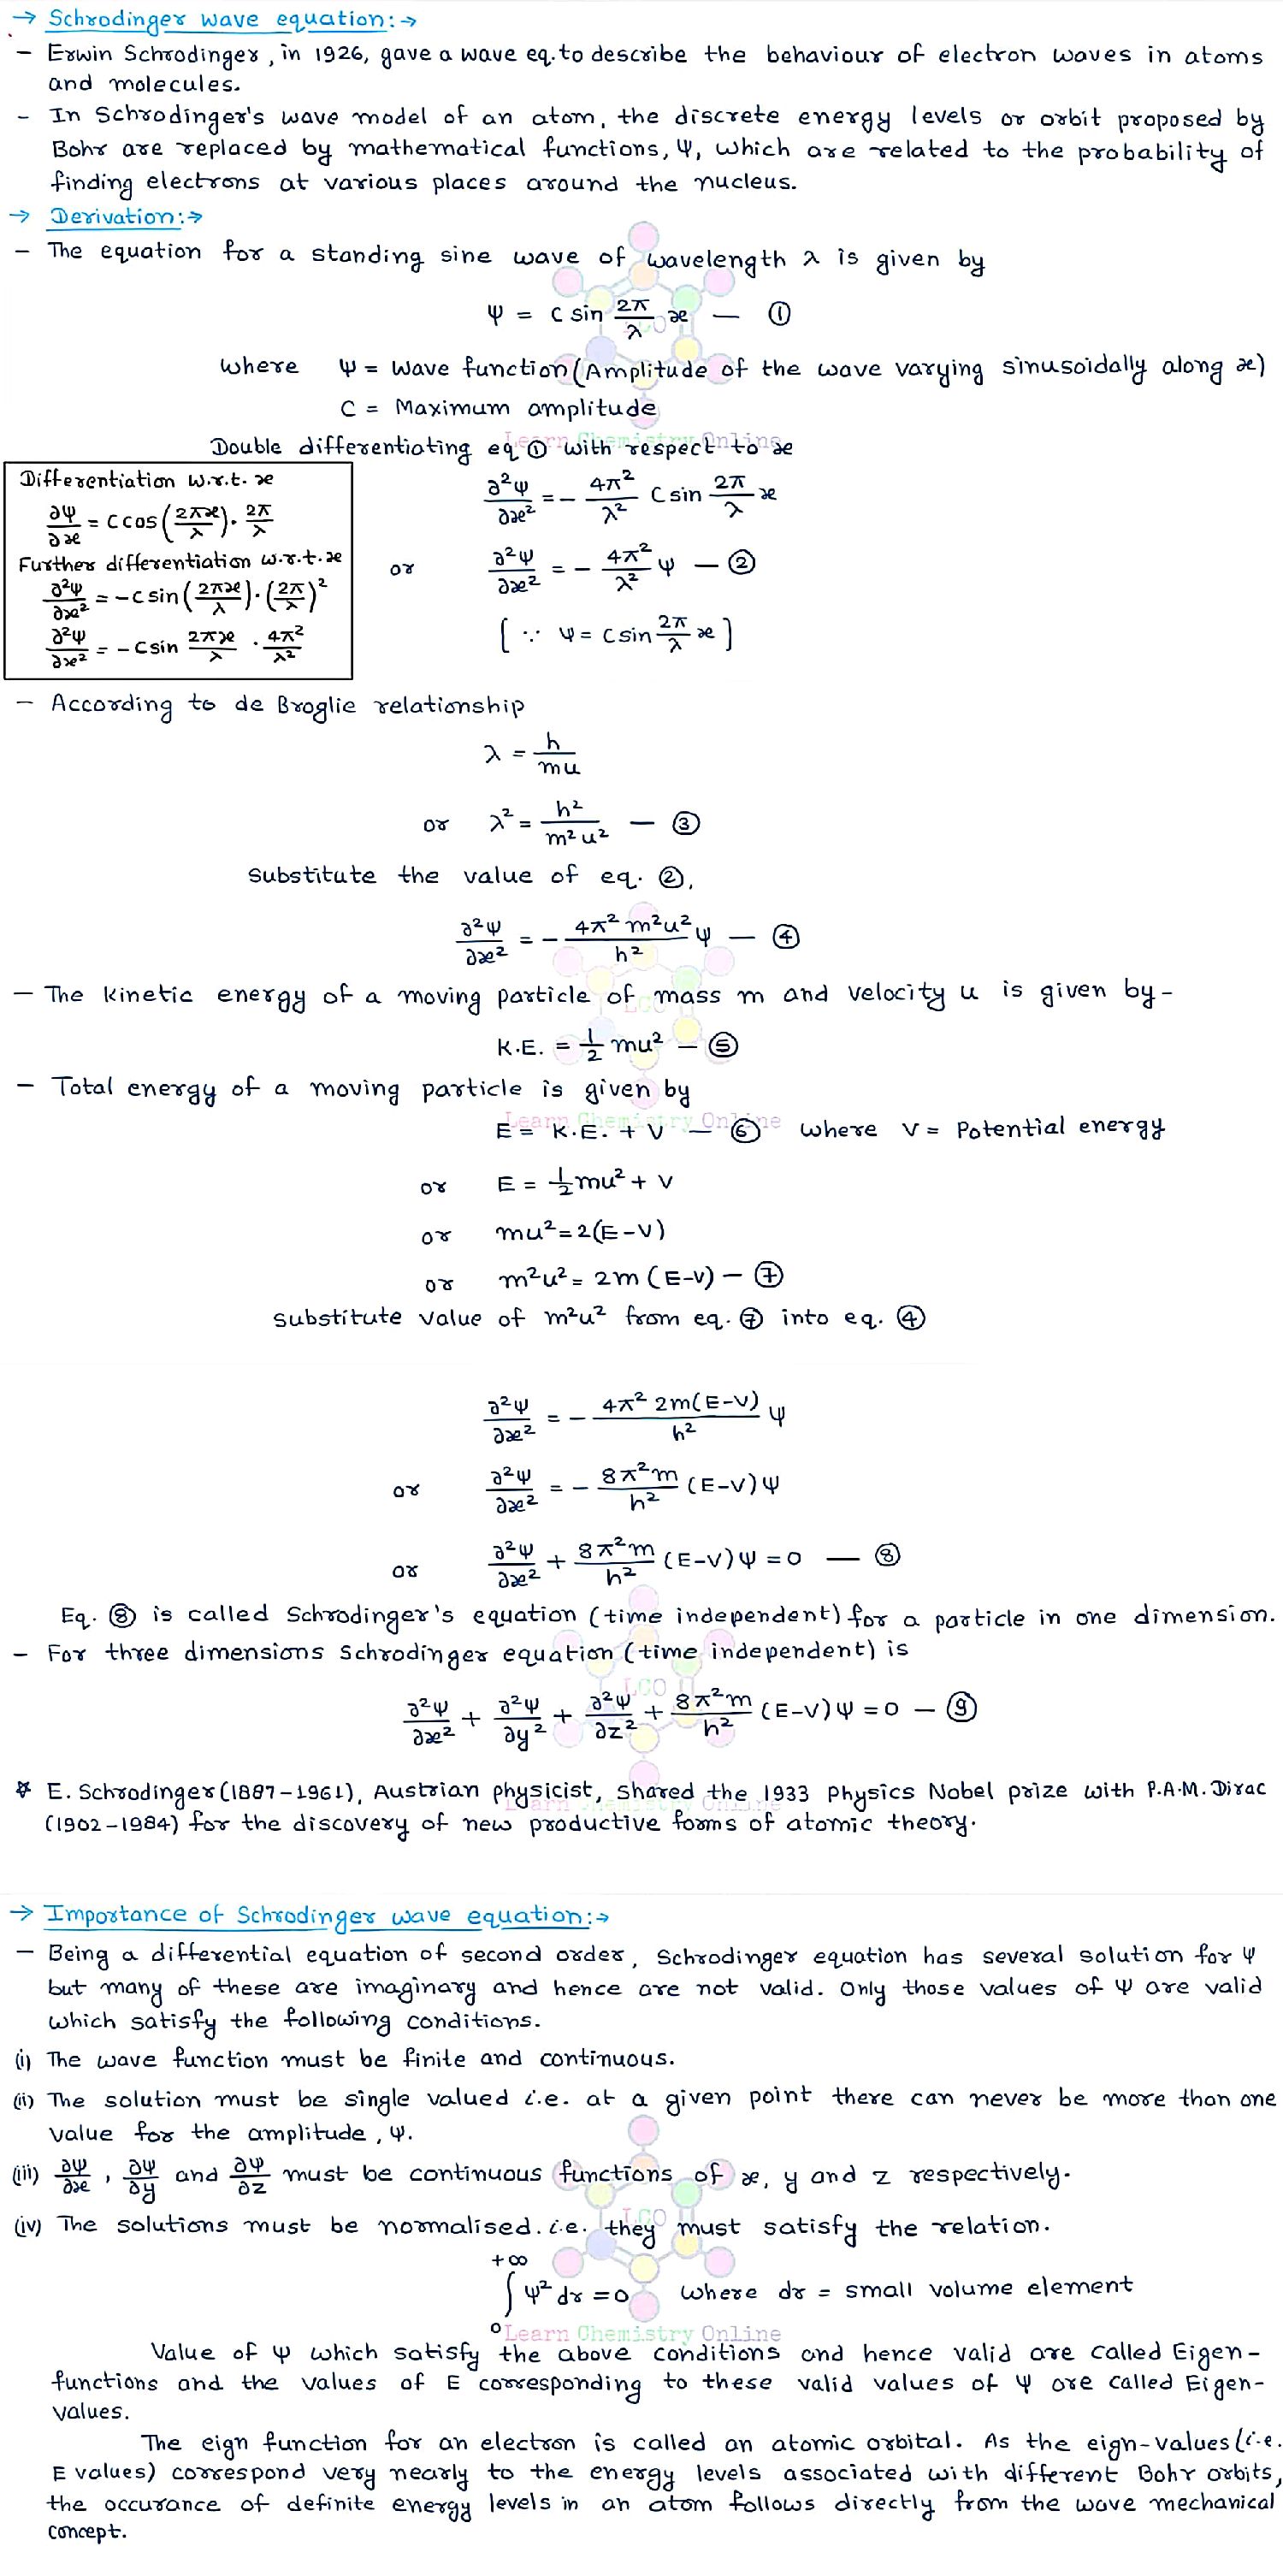 → Schrodinger wave equation:→
- Erwin Schrodinger, in 1926, gave a wave eq. to describe the behaviour of electron waves in atoms
and molecules.
- In Schrodinger's wave model of an atom, the discrete energy levels or orbit proposed by
Bohr are replaced by mathematical functions, Ψ, which are related to the probability of
finding electrons at various places around the nucleus.
→ Derivation:→
- The equation for a standing sine wave of wavelength λ is given by
Ψ = C sin 2π/λ x — ①
where Ψ = Wave function (Amplitude of the wave varying sinusoidally along x)
C = Maximum amplitude
Learn Chemistry Online
Double differentiating eq ① with respect to x
Differentiation w.r.t. x
∂Ψ/∂x = C cos (2πx/λ) · 2π/λ
Further differentiation w.r.t. x
∂²Ψ/∂x² = -C sin (2πx/λ) · (2π/λ)²
∂²Ψ/∂x² = -C sin 2πx/λ · 4π²/λ²
∂²Ψ/∂x² = - 4π²/λ² C sin 2π/λ x
or ∂²Ψ/∂x² = - 4π²/λ² Ψ — ②
[∵ Ψ = C sin 2π/λ x]
- According to de Broglie relationship
λ = h/mu
or λ² = h²/m²u² — ③
Substitute the value of eq. ②,
∂²Ψ/∂x² = - 4π² m²u²/h² Ψ — ④
LCO
- The kinetic energy of a moving particle of mass m and velocity u is given by-
K.E. = 1/2 mu² — ⑤
- Total energy of a moving particle is given by
Learn Chemistry Online
E = K.E. + V — ⑥ where V = Potential energy
or E = 1/2 mu² + V
or mu² = 2(E-V)
or m²u² = 2m (E-V) — ⑦
Substitute value of m²u² from eq. ⑦ into eq. ④
∂²Ψ/∂x² = - 4π² 2m(E-V)/h² Ψ
or ∂²Ψ/∂x² = - 8π²m/h² (E-V)Ψ
or ∂²Ψ/∂x² + 8π²m/h² (E-V)Ψ = 0 — ⑧
Eq. ⑧ is called Schrodinger's equation (time independent) for a particle in one dimension.
- For three dimensions Schrodinger equation (time independent) is
LCO
∂²Ψ/∂x² + ∂²Ψ/∂y² + ∂²Ψ/∂z² + 8π²m/h² (E-V)Ψ = 0 — ⑨
☆ E. Schrodinger (1887-1961), Austrian physicist, shared the 1933 Physics Nobel prize with P.A.M. Dirac
(1902-1984) for the discovery of new productive forms of atomic theory.
→ Importance of Schrodinger wave equation:→
- Being a differential equation of second order, Schrodinger equation has several solution for Ψ
but many of these are imaginary and hence are not valid. Only those values of Ψ are valid
which satisfy the following conditions.
(i) The wave function must be finite and continuous.
(ii) The solution must be single valued i.e. at a given point there can never be more than one
value for the amplitude, Ψ.
(iii) ∂Ψ/∂x, ∂Ψ/∂y and ∂Ψ/∂z must be continuous functions of x, y and z respectively.
LCO
(iv) The solutions must be normalised. i.e. they must satisfy the relation.
+∞
∫ Ψ² dr = 0 where dr = small volume element
0
Learn Chemistry Online
Value of Ψ which satisfy the above conditions and hence valid are called Eigen-
functions and the values of E corresponding to these valid values of Ψ are called Eigen-
values.
The eign function for an electron is called an atomic orbital. As the eign-values (i.e.
E values) correspond very nearly to the energy levels associated with different Bohr orbits,
the occurance of definite energy levels in an atom follows directly from the wave mechanical
concept.